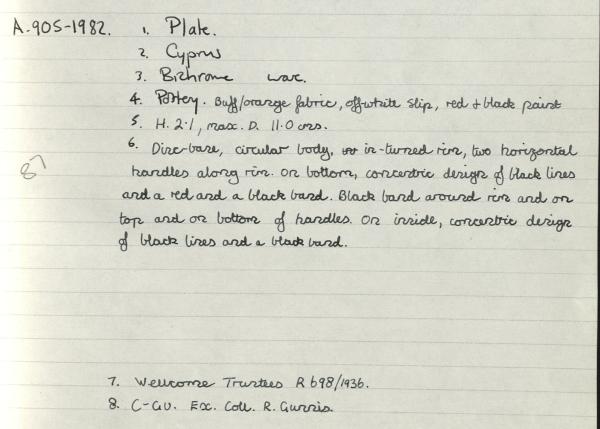 A.905-1982. 1. Plate.
2. Cyprus
3. Bichrome ware.
4. Pottery. Buff/orange fabric, off-white slip, red + black paint
5. H. 2.1, max. D. 11.0 cms.
6. Disc-base, circular body, in-turned rim, two horizontal
handles along rim. On bottom, concentric design of black lines
and a red and a black band. Black band around rim and on
top and on bottom of handles. On inside, concentric design
of black lines and a black band.
87
7. Wellcome Trustees R 698/1936.
8. C-GU. Ex. Coll. R. Gunnis.